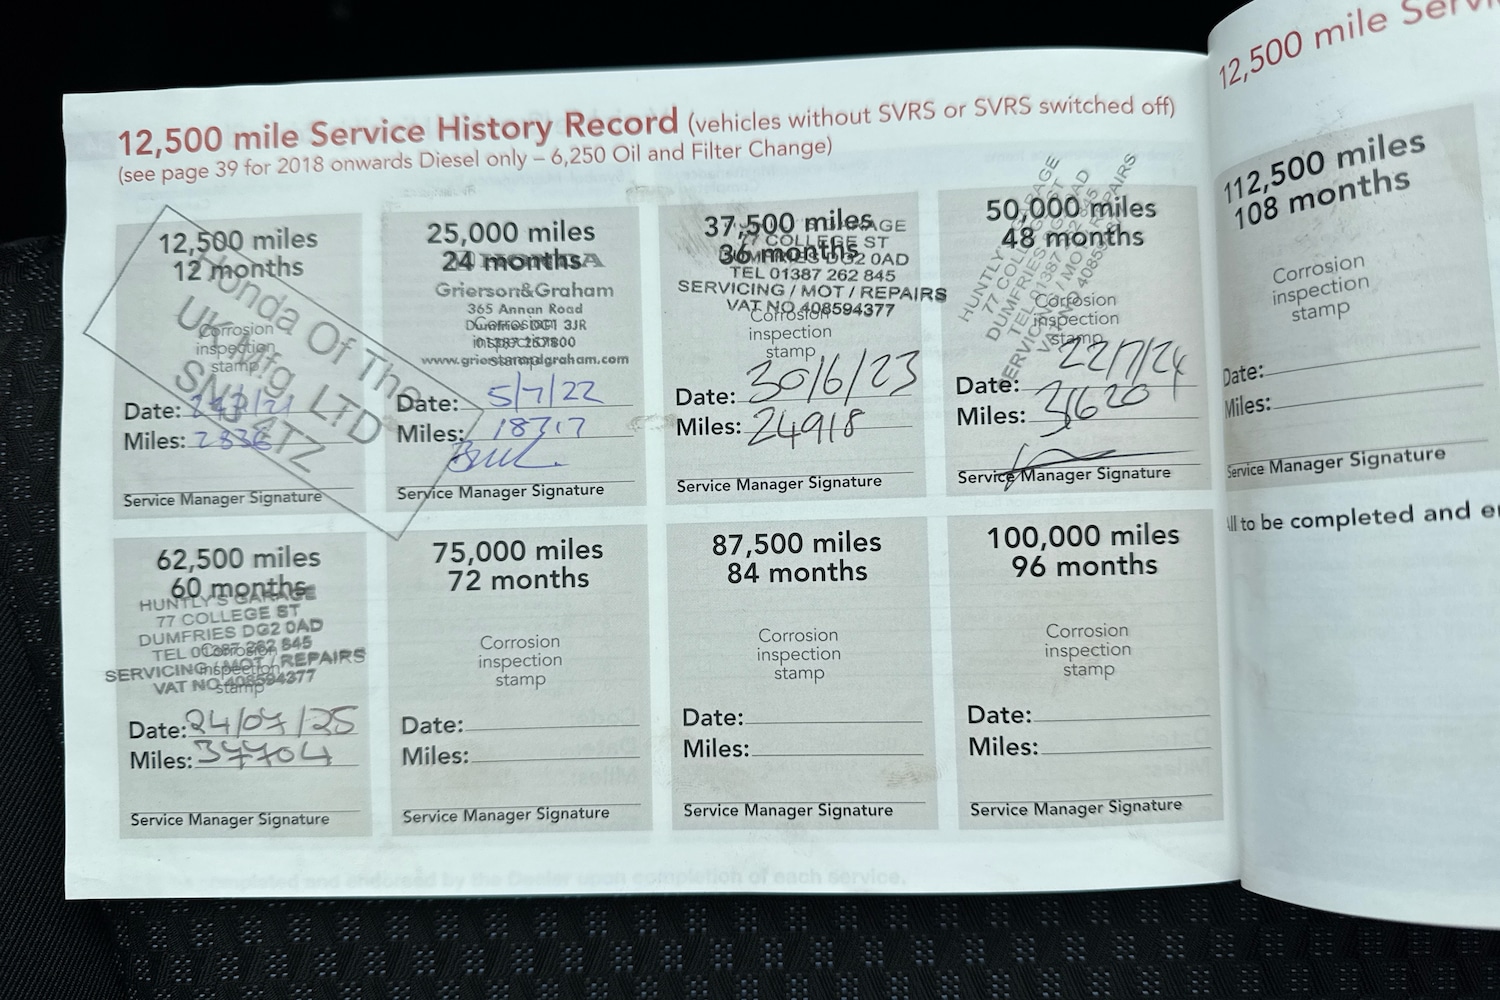 12,500 mile Service History Record (vehicles without SVRS or SVRS switched off)
(see page 39 for 2018 onwards Diesel only – 6,250 Oil and Filter Change)
12,500 miles
12 months
Honda Of The
UK Mfg. LTD
SN3 4TZ
Corrosion
inspection
stamp
Date:
Miles: 2836
Service Manager Signature
25,000 miles
24 months
Grierson&Graham
365 Annan Road
Dumfries DG1 3JR
Corrosion
inspection
stamp
www.griersonandgraham.com
Date: 5/7/22
Miles: 18317
Service Manager Signature
37,500 miles
36 months
77 COLLEGE ST
DUMFRIES DG2 0AD
TEL 01387 262 845
SERVICING / MOT / REPAIRS
VAT NO 408594377
Corrosion
inspection
stamp
Date: 30/6/23
Miles: 24918
Service Manager Signature
50,000 miles
48 months
HUNTLY'S GARAGE
77 COLLEGE ST
DUMFRIES DG2 0AD
TEL 01387 262 845
SERVICING / MOT / REPAIRS
VAT NO 408594377
Corrosion
inspection
stamp
Date: 22/7/24
Miles: 31620
Service Manager Signature
62,500 miles
60 months
HUNTLY'S GARAGE
77 COLLEGE ST
DUMFRIES DG2 0AD
TEL 01387 262 845
SERVICING / MOT / REPAIRS
VAT NO 408594377
Corrosion
inspection
stamp
Date: 24/07/25
Miles: 37704
Service Manager Signature
75,000 miles
72 months
Corrosion
inspection
stamp
Date:
Miles:
Service Manager Signature
87,500 miles
84 months
Corrosion
inspection
stamp
Date:
Miles:
Service Manager Signature
100,000 miles
96 months
Corrosion
inspection
stamp
Date:
Miles:
Service Manager Signature
12,500 mile Servi
112,500 miles
108 months
Corrosion
inspection
stamp
Date:
Miles:
Service Manager Signature
All to be completed and e